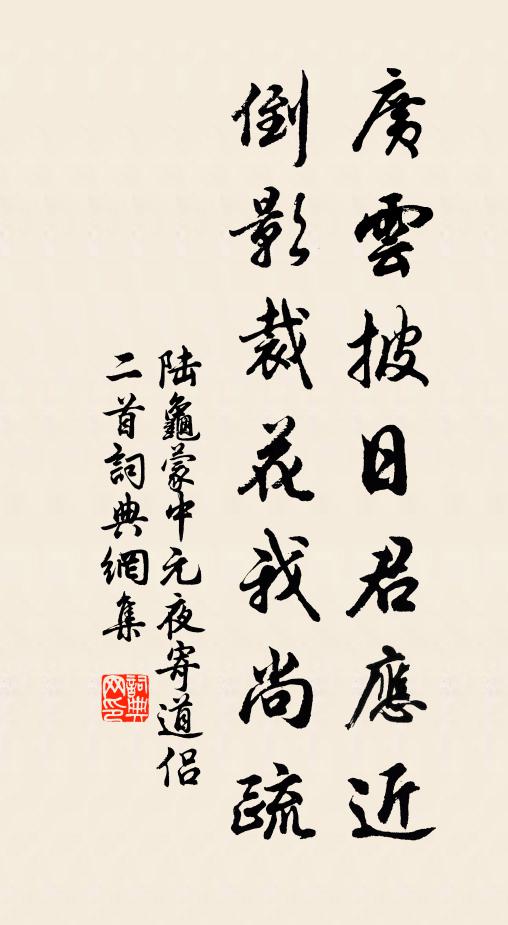 廣雲披日君應近
倒影裁花我尚疏
陸龜蒙中元夜寄道侶
二首詞典網集
詞典
网印